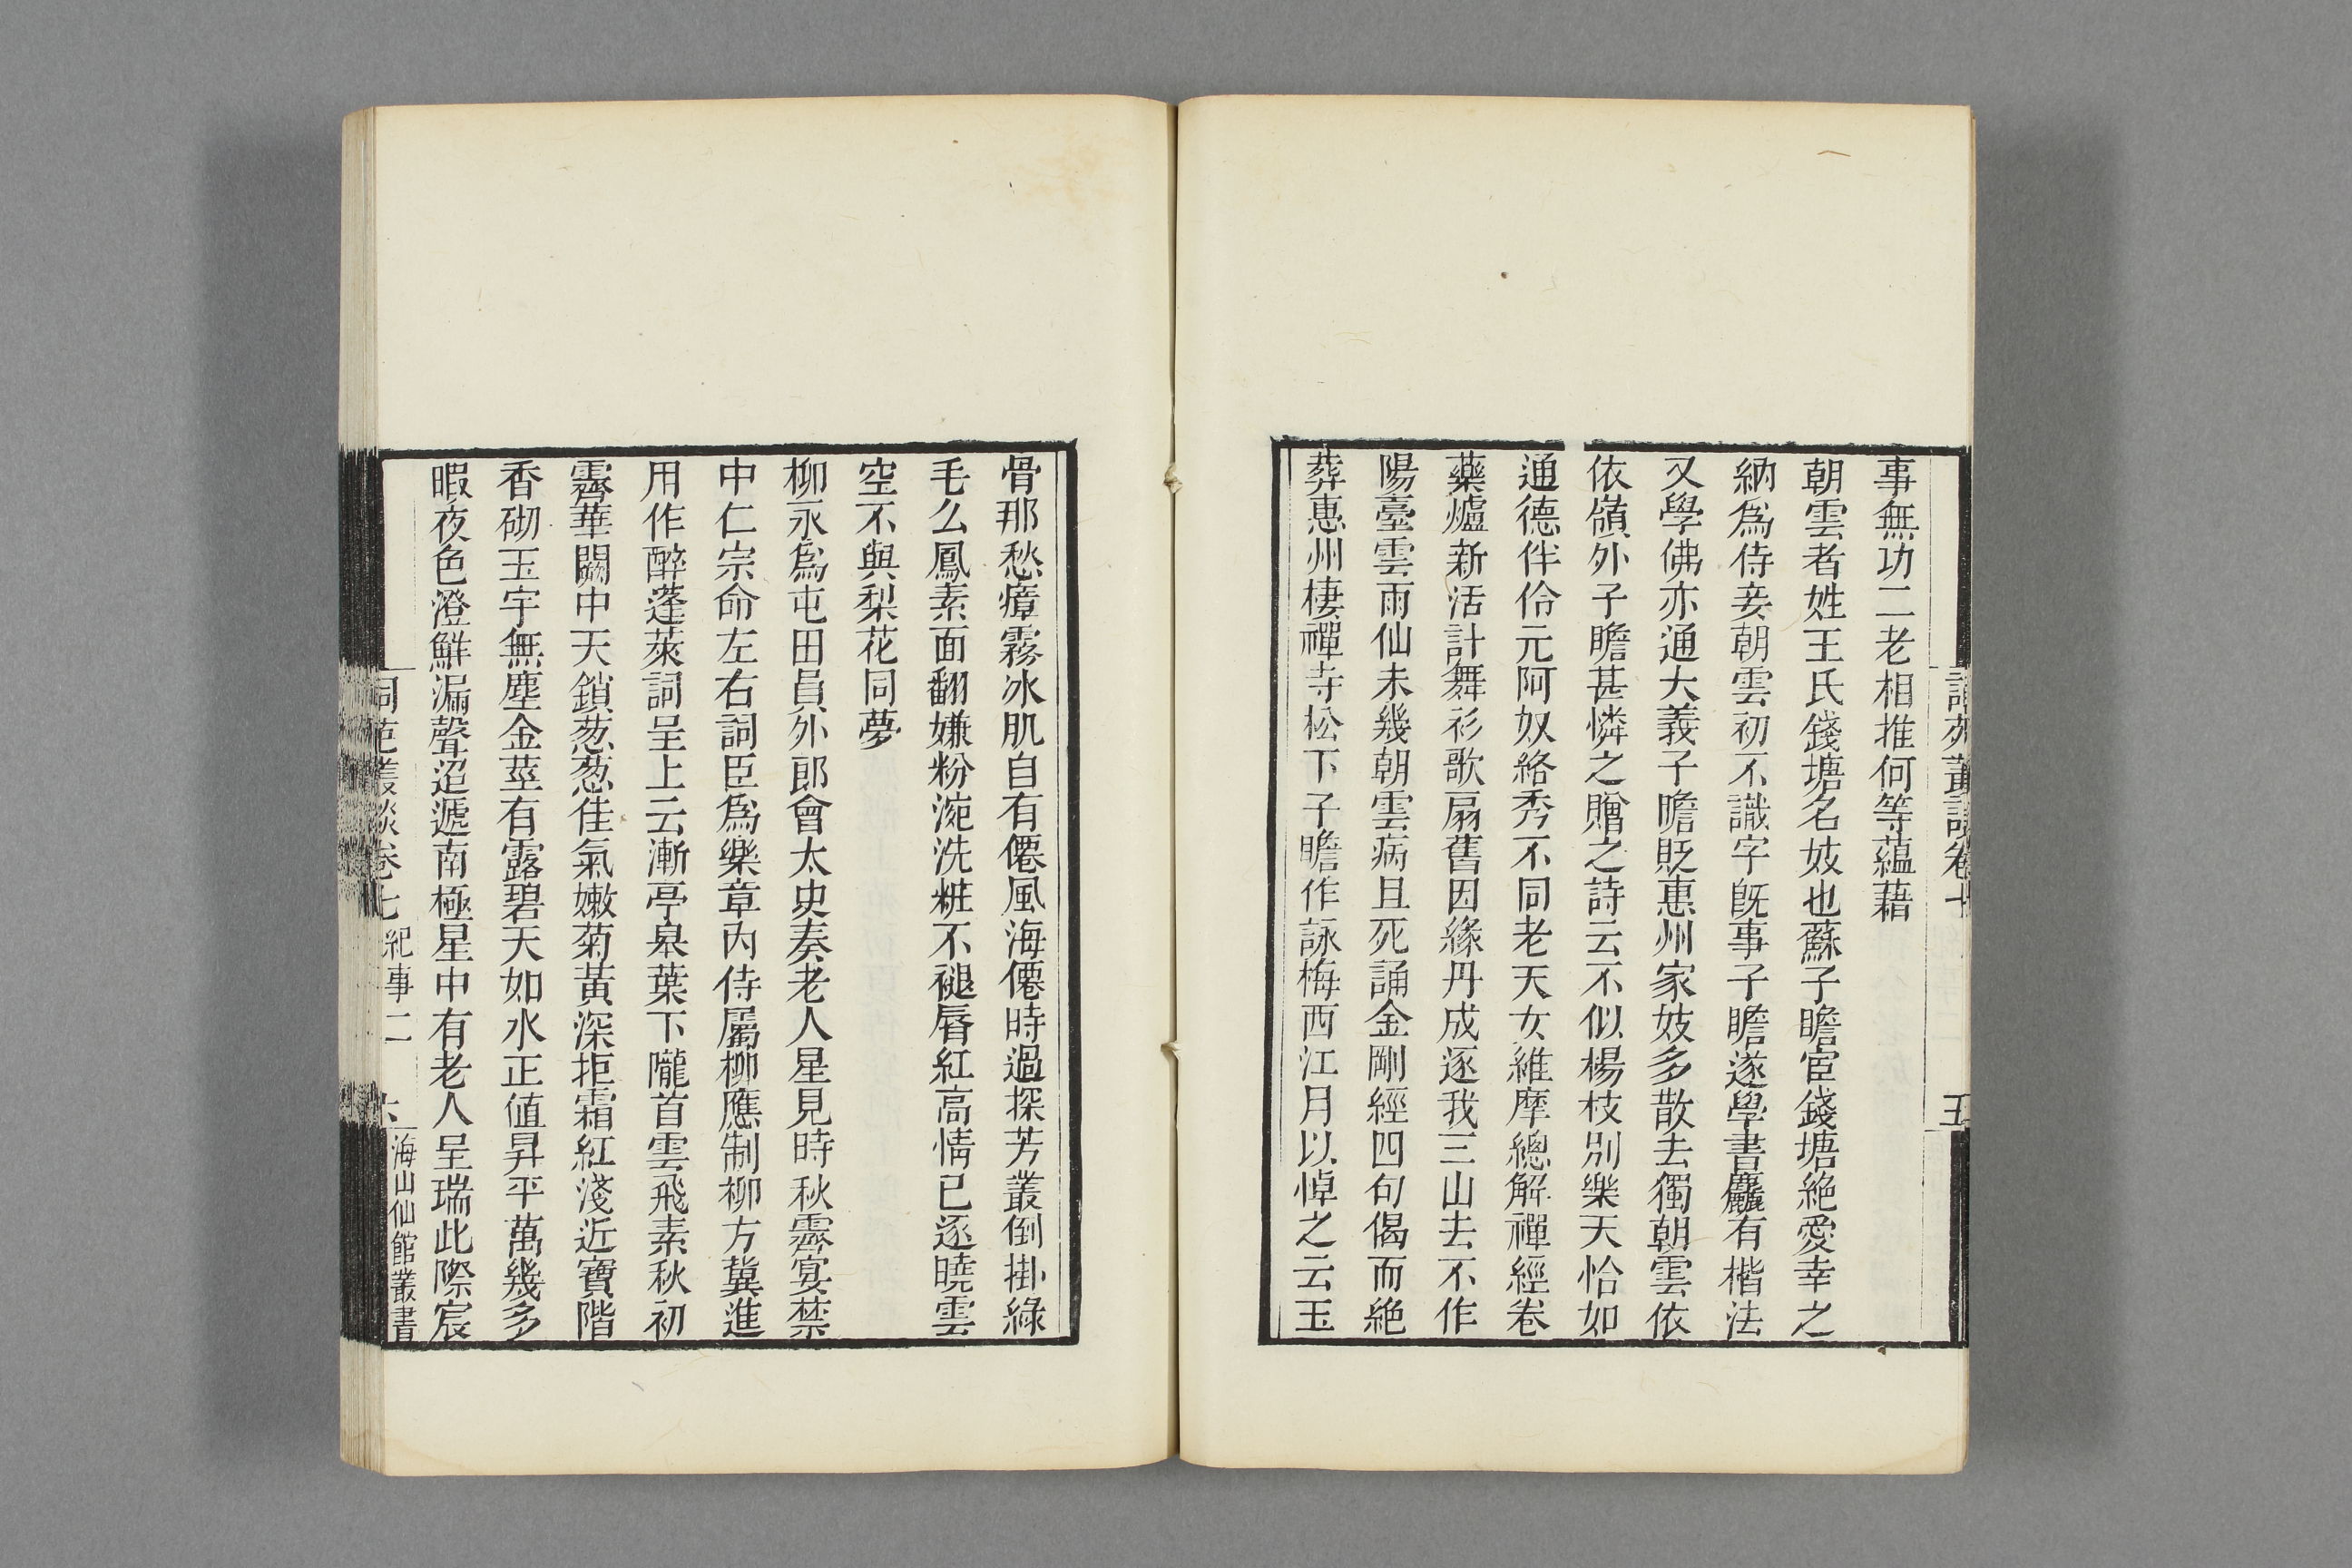 事無功二老相推何等蘊藉
朝雲者姓王氏錢塘名妓也蘇子瞻宦錢塘絶愛幸之
納爲侍妾朝雲初不識字旣事子瞻遂學書麤有楷法
又學佛亦通大義子瞻貶惠州家妓多散去獨朝雲依
依嶺外子瞻甚憐之贈之詩云不似楊枝別樂天恰如
通德伴伶元阿奴絡秀不同老天女維摩總解禪經卷
藥爐新活計舞衫歌扇舊因緣丹成逐我三山去不作
陽臺雲雨仙未幾朝雲病且死誦金剛經四句偈而絶
葬惠州棲禪寺松下子瞻作詠梅西江月以悼之云玉
骨那愁瘴霧冰肌自有僊風海僊時過探芳叢倒掛綠
毛么鳳素面翻嫌粉涴洗粧不褪唇紅高情已逐曉雲
空不與梨花同夢
柳永爲屯田員外郎會太史奏老人星見時秋霽宴禁
中仁宗命左右詞臣爲樂章內侍屬柳應制柳方冀進
用作醉蓬萊詞呈上云漸亭皋葉下隴首雲飛素秋初
霽華闕中天鎖葱葱佳氣嫩菊黃深拒霜紅淺近寶階
香砌玉宇無塵金莖有露碧天如水正値昇平萬幾多
暇夜色澄鮮漏聲迢遞南極星中有老人呈瑞此際宸
詞苑叢談卷七 紀事二 六 海山仙館叢書